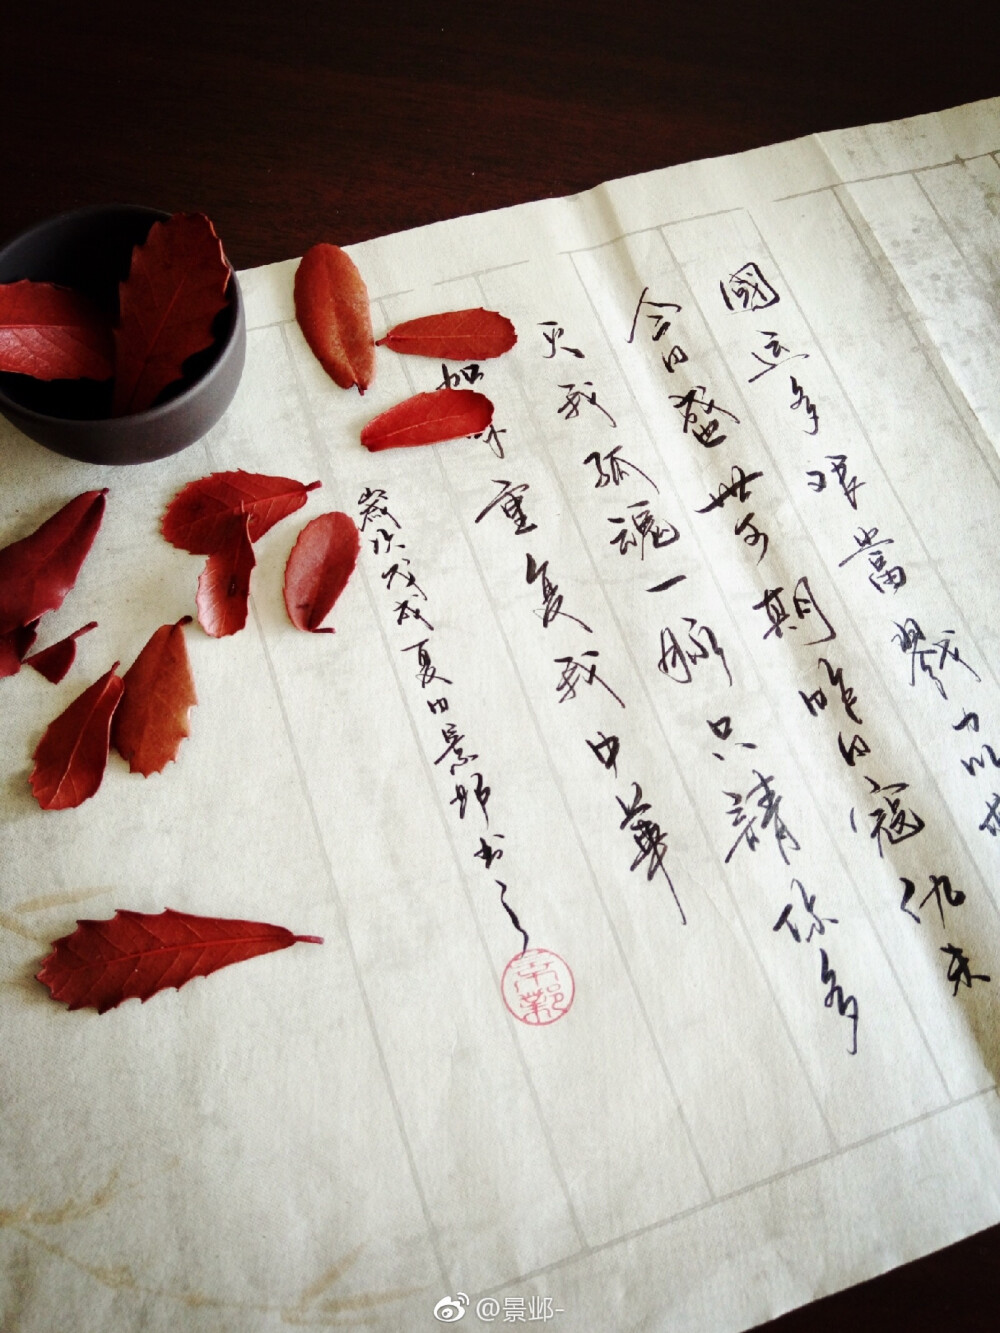 國运多艰當戮力以
今日盛世可期昨日寇仇未
灭我孤魂一脉只請你多
加珍重复我中華
歲次戊戌夏日景邺书
@景邺-